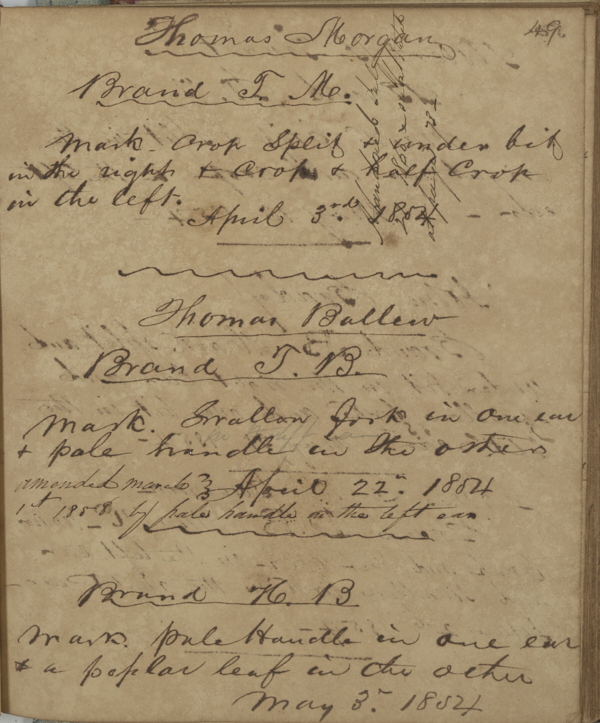 Thomas Morgan
Brand T. M.
Mark. Crop Split & under bit
in the right & Crop & half Crop
in the left.
April 3rd 1854
Thomas Ballew
Brand T. B.
Mark. Swallow fork in one ear
& pale handle in the other
amended march } April 22n 1854
1st 1858 by pale handle in the left ear
Brand H. B
Mark. pale Handle in one ear
& a poplar leaf in the other
May 3r 1854